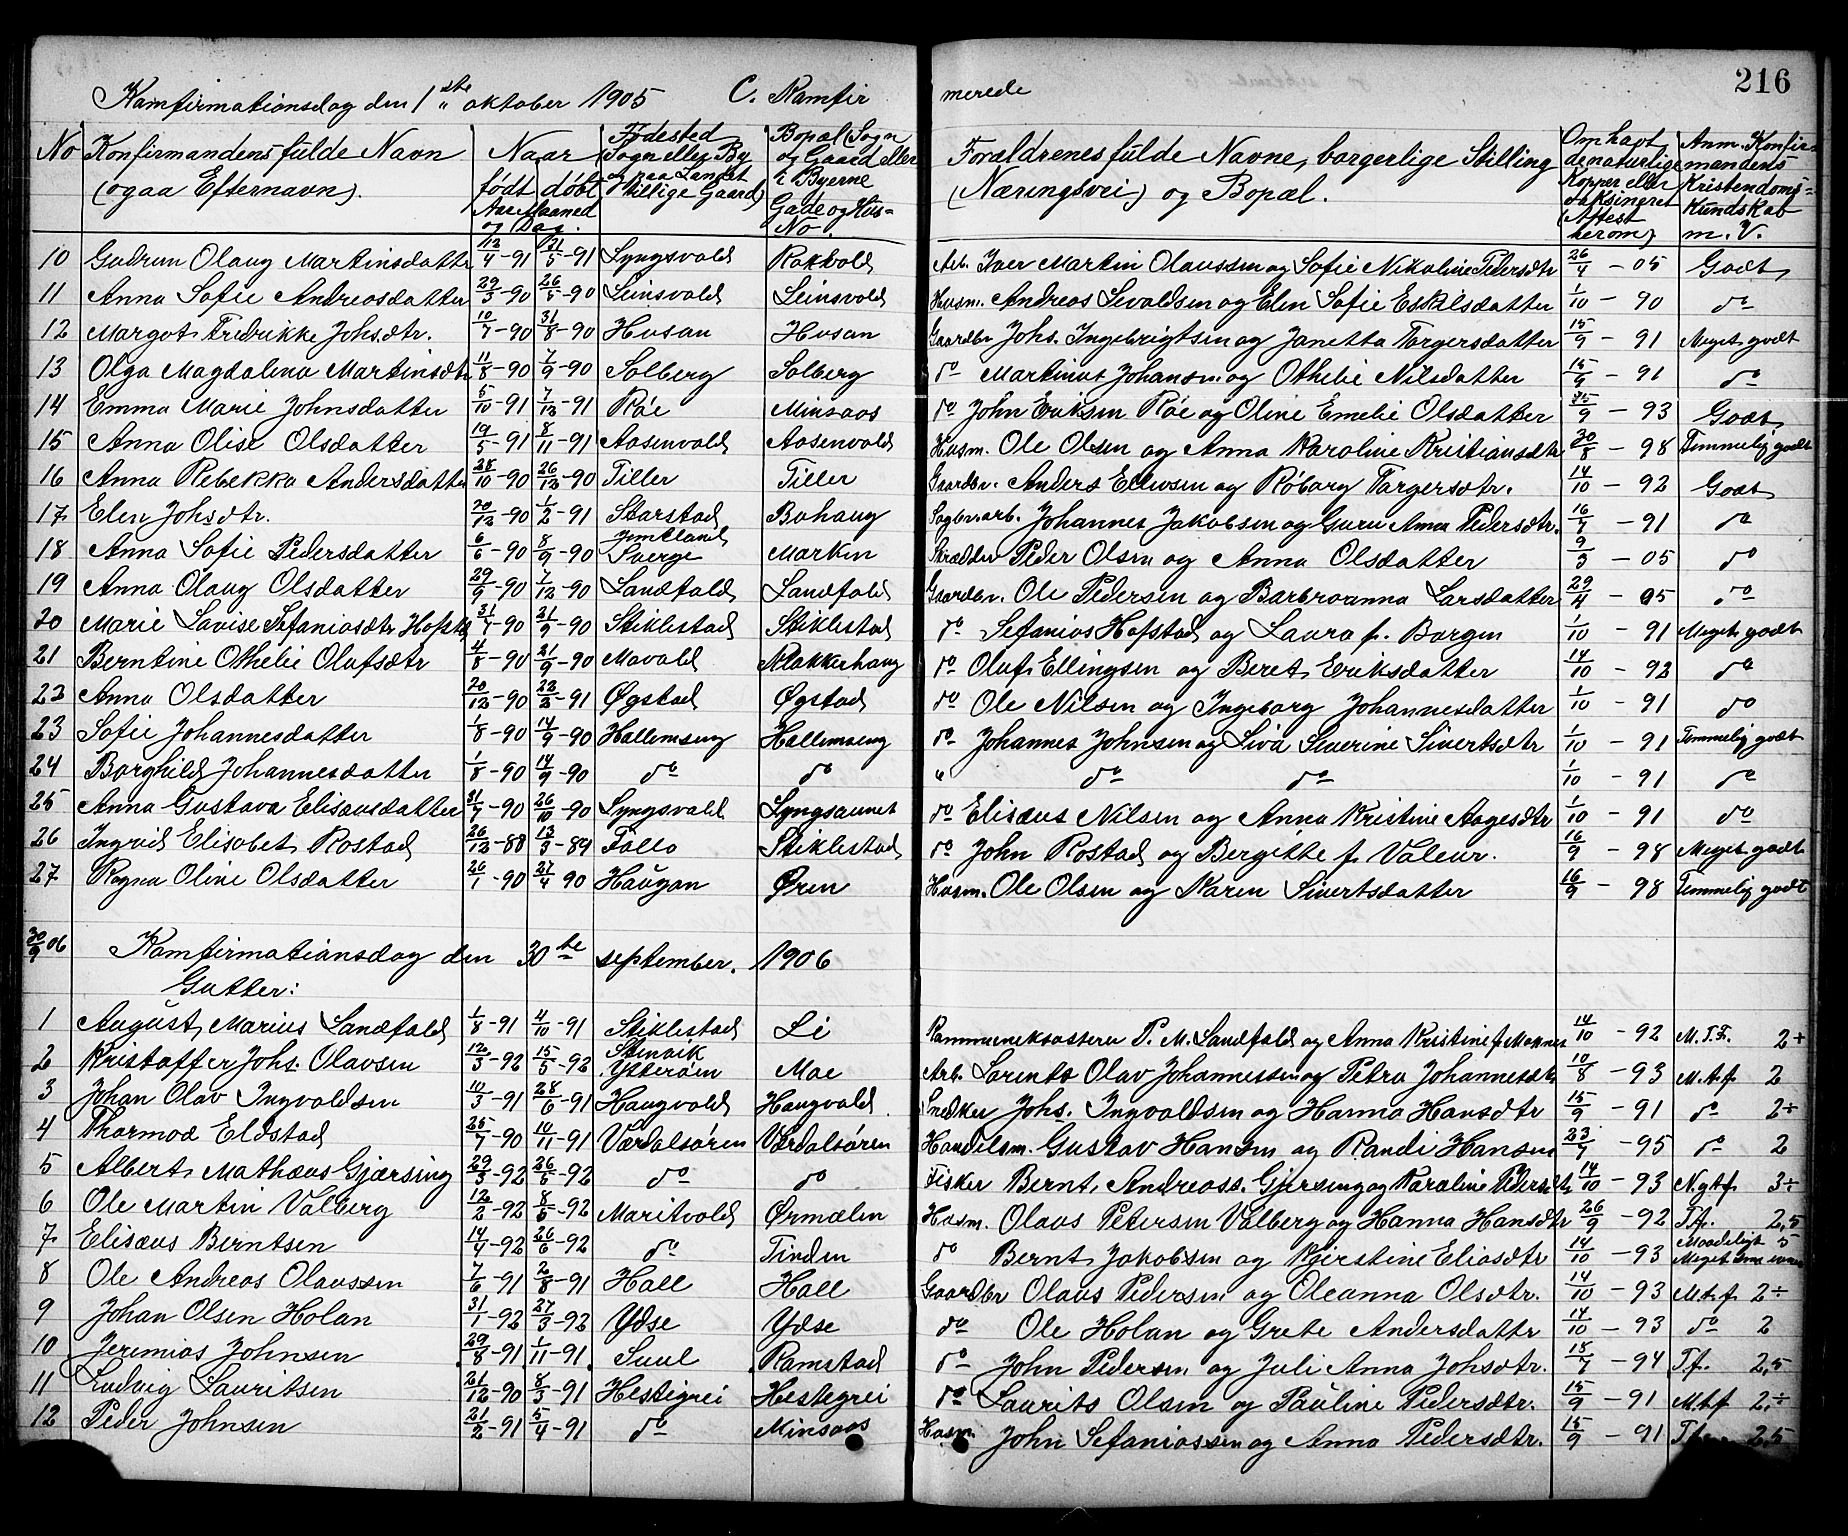 216
Konfirmationsdag den 1ste oktober 1905 C. Konfir merede
No Konfirmandens fulde Navn (ogaa Efternavn). Naar født døbt Aar Maaned og Dag. Fødested (Sogn eller By og paa Landet tillige Gaard) Bopæl (Sogn og Gaard eller i Byerne Gade og Hus- No. Forældrenes fulde Navne, borgerlige Stilling (Næringsvei) og Bopæl. Om havt de naturlige Kopper eller vaksineret (Attest herom) Anm. Konfir- mandens Kristendoms- Kundskab m. V.
10 Gudrun Olaug Martinsdatter 12/4-91 21/5-91 Lyngsvold Rokvold Arb. Iver Martin Olaussen og Sofie Nikoline Pedersdtr 26/4 - 05 Godt
11 Anna Sofie Andreasdatter 29/3-90 26/5-90 Leinsvold Leinsvold Husm. Andreas Sevaldsen og Elen Sofie Eskilsdatter 1/10 - 90 do
12 Margot Fredrikke Johsdtr. 10/7-90 31/8-90 Husan Husan Gaardbr Johs. Ingebrigtsen og Janetta Torgersdatter 15/9 - 91 Meget godt
13 Olga Magdalena Martinsdtr 11/8-90 7/9-90 Solberg Solberg do Martinus Johansen og Othelie Nilsdatter 15/9 - 91 do
14 Emma Marie Johnsdatter 5/10-91 7/12-91 Røe Minsaas do John Eriksen Røe og Oline Emelie Olsdatter 25/9 - 93 Godt
15 Anna Olise Olsdatter 19/5-91 8/11-91 Aasenvold Aasenvold Husm. Ole Olsen og Anna Karoline Kristiansdtr 30/8 - 98 Temmelig godt
16 Anna Rebekka Andersdatter 28/10-90 26/12-90 Tiller Tiller Gaardbr. Anders Ellevsen og Røborg Torgersdtr. 14/10 - 92 Godt
17 Elen Johsdtr. 20/12-90 1/2-91 Storstad Bohaug Sagbr.arb. Johannes Jakobsen og Guru Anna Pedersdtr. 16/7 - 91 do
18 Anna Sofie Pedersdatter 6/6-90 8/9-90 Jemtland Sverge Marken Skrædder Peder Olsen og Anna Olsdatter 9/3 - 05 do
19 Anna Olaug Olsdatter 29/9-90 7/12-90 Landfald Landfald Gaardbr. Ole Pedersen og Barbroanna Larsdatter 29/4 - 05 do
20 Marie Lovise Stefaniasdtr Hofstad 31/7-90 21/9-90 Stiklestad Stiklestad do Sefanias Hofstad og Laura f. Borgen 1/10 - 91 Meget godt
21 Berntine Othelie Olufsdtr 4/8-90 21/9-90 Movald Klokkerhaug do Oluf Ellingsen og Beret Eriksdatter 14/10 - 92 do
22 Anna Olsdatter 20/12-90 22/2-91 Øgstad Øgstad do Ole Nilsen og Ingeborg Johannesdatter 1/10 - 91 do
23 Sofie Johannesdatter 1/8-90 14/9-90 Hallemseng Hallemseng do Johannes Johnsen og Siva Severine Sivertsdtr 1/10 - 91 Temmelig godt
24 Borghild Johannesdatter 1/8-90 14/9-90 do do " do do 1/10 - 91 do
25 Anna Gustava Elisæusdatter 31/7-90 26/10-90 Lyngsvald Lyngsaunet do Elisæus Nilsen og Anna Kristine Aagesdtr 1/10 - 91 do
26 Ingrid Elisabet Rostad 26/12-88 13/3-89 Follo Stiklestad do John Rostad og Bergitte f. Valeur. 16/9 - 98 Meget godt
27 Ragna Oline Olsdatter 26/1-90 27/4 90 Haugan Øren Husm. Ole Olsen og Karen Sivertsdatter 16/9 - 98 Temmelig godt
30/9 06 Konfirmationsdag den 30te september. 1906
Gutter:
1 August Marius Landfald 1/8-91 4/10-91 Stiklestad Li Kommunekasserer P. M. Landfald og Anna Kristine f. Moknes 14/10 - 92 M.T.F. 2÷
2 Kristoffer Johs. Olavsen 12/3-92 15/5-92 Stenvik Ytterøen Moe Arb. Lorents Olav Johannessen og Petra Johannesdtr 10/8 - 93 M.t.f. 2
3 Johan Olav Ingvaldsen 10/3-91 28/6-91 Haugvold Haugvold. Snedker Johs. Ingvaldsen og Hanna Hansdtr 15/9 - 91 do 2÷
4 Thormod Eldstad 25/7-90 10/11-91 Værdalsøren Værdalsøren Handelsm. Gustav Hansen og Randi Hansen 23/7 - 95 do 2
5 Albert Mathæus Gjærsing 29/3-92 26/5-92 do do Fisker Bernt Andreass. Gjersing og Karoline Pedersdtr 14/10 - 93 N.gt.f. 3÷
6 Ole Martin Valberg 12/2-92 8/5-92 Maritvold Ørmelen Husm. Olaus Petersen Valberg og Hanna Hansdtr 26/9 - 92 T.f. 2,5
7 Elisæus Berntsen 14/4-92 26/6-92 do Tinden do Bernt Jakobsen og Kjerstine Eliasdtr 14/10 - 93 Maadeligt 5 Meget
8 Ole Andreas Olaussen 7/6-91 2/8-91 Hall Hall Gaardbr Olaus Pedersen og Oleanna Olsdtr. 14/10 - 93 M.t.f. 2÷
9 Johan Olsen Holan 31/1-92 27/3-92 Ydse Ydse do Ole Holan og Grete Andersdattr 14/10 - 93 do 2
10 Jeremias Johnsen 29/8-91 1/11-91 Suul Ramstad do John Pedersen og Juli Anna Johsdtr. 18/7 - 94 T.f. 2,5
11 Ludvig Lauritsen 21/12-90 8/3-91 Hestegrei Hestegrei do Laurits Olsen og Pauline Pedersdtr. 15/9 - 91 M.t.f. 2,÷
12 Peder Johnsen 21/2-91 5/4-91 do Minsaas Husm. John Sefaniassen og Anna Pedersdtr. 15/9 - 91 2,5